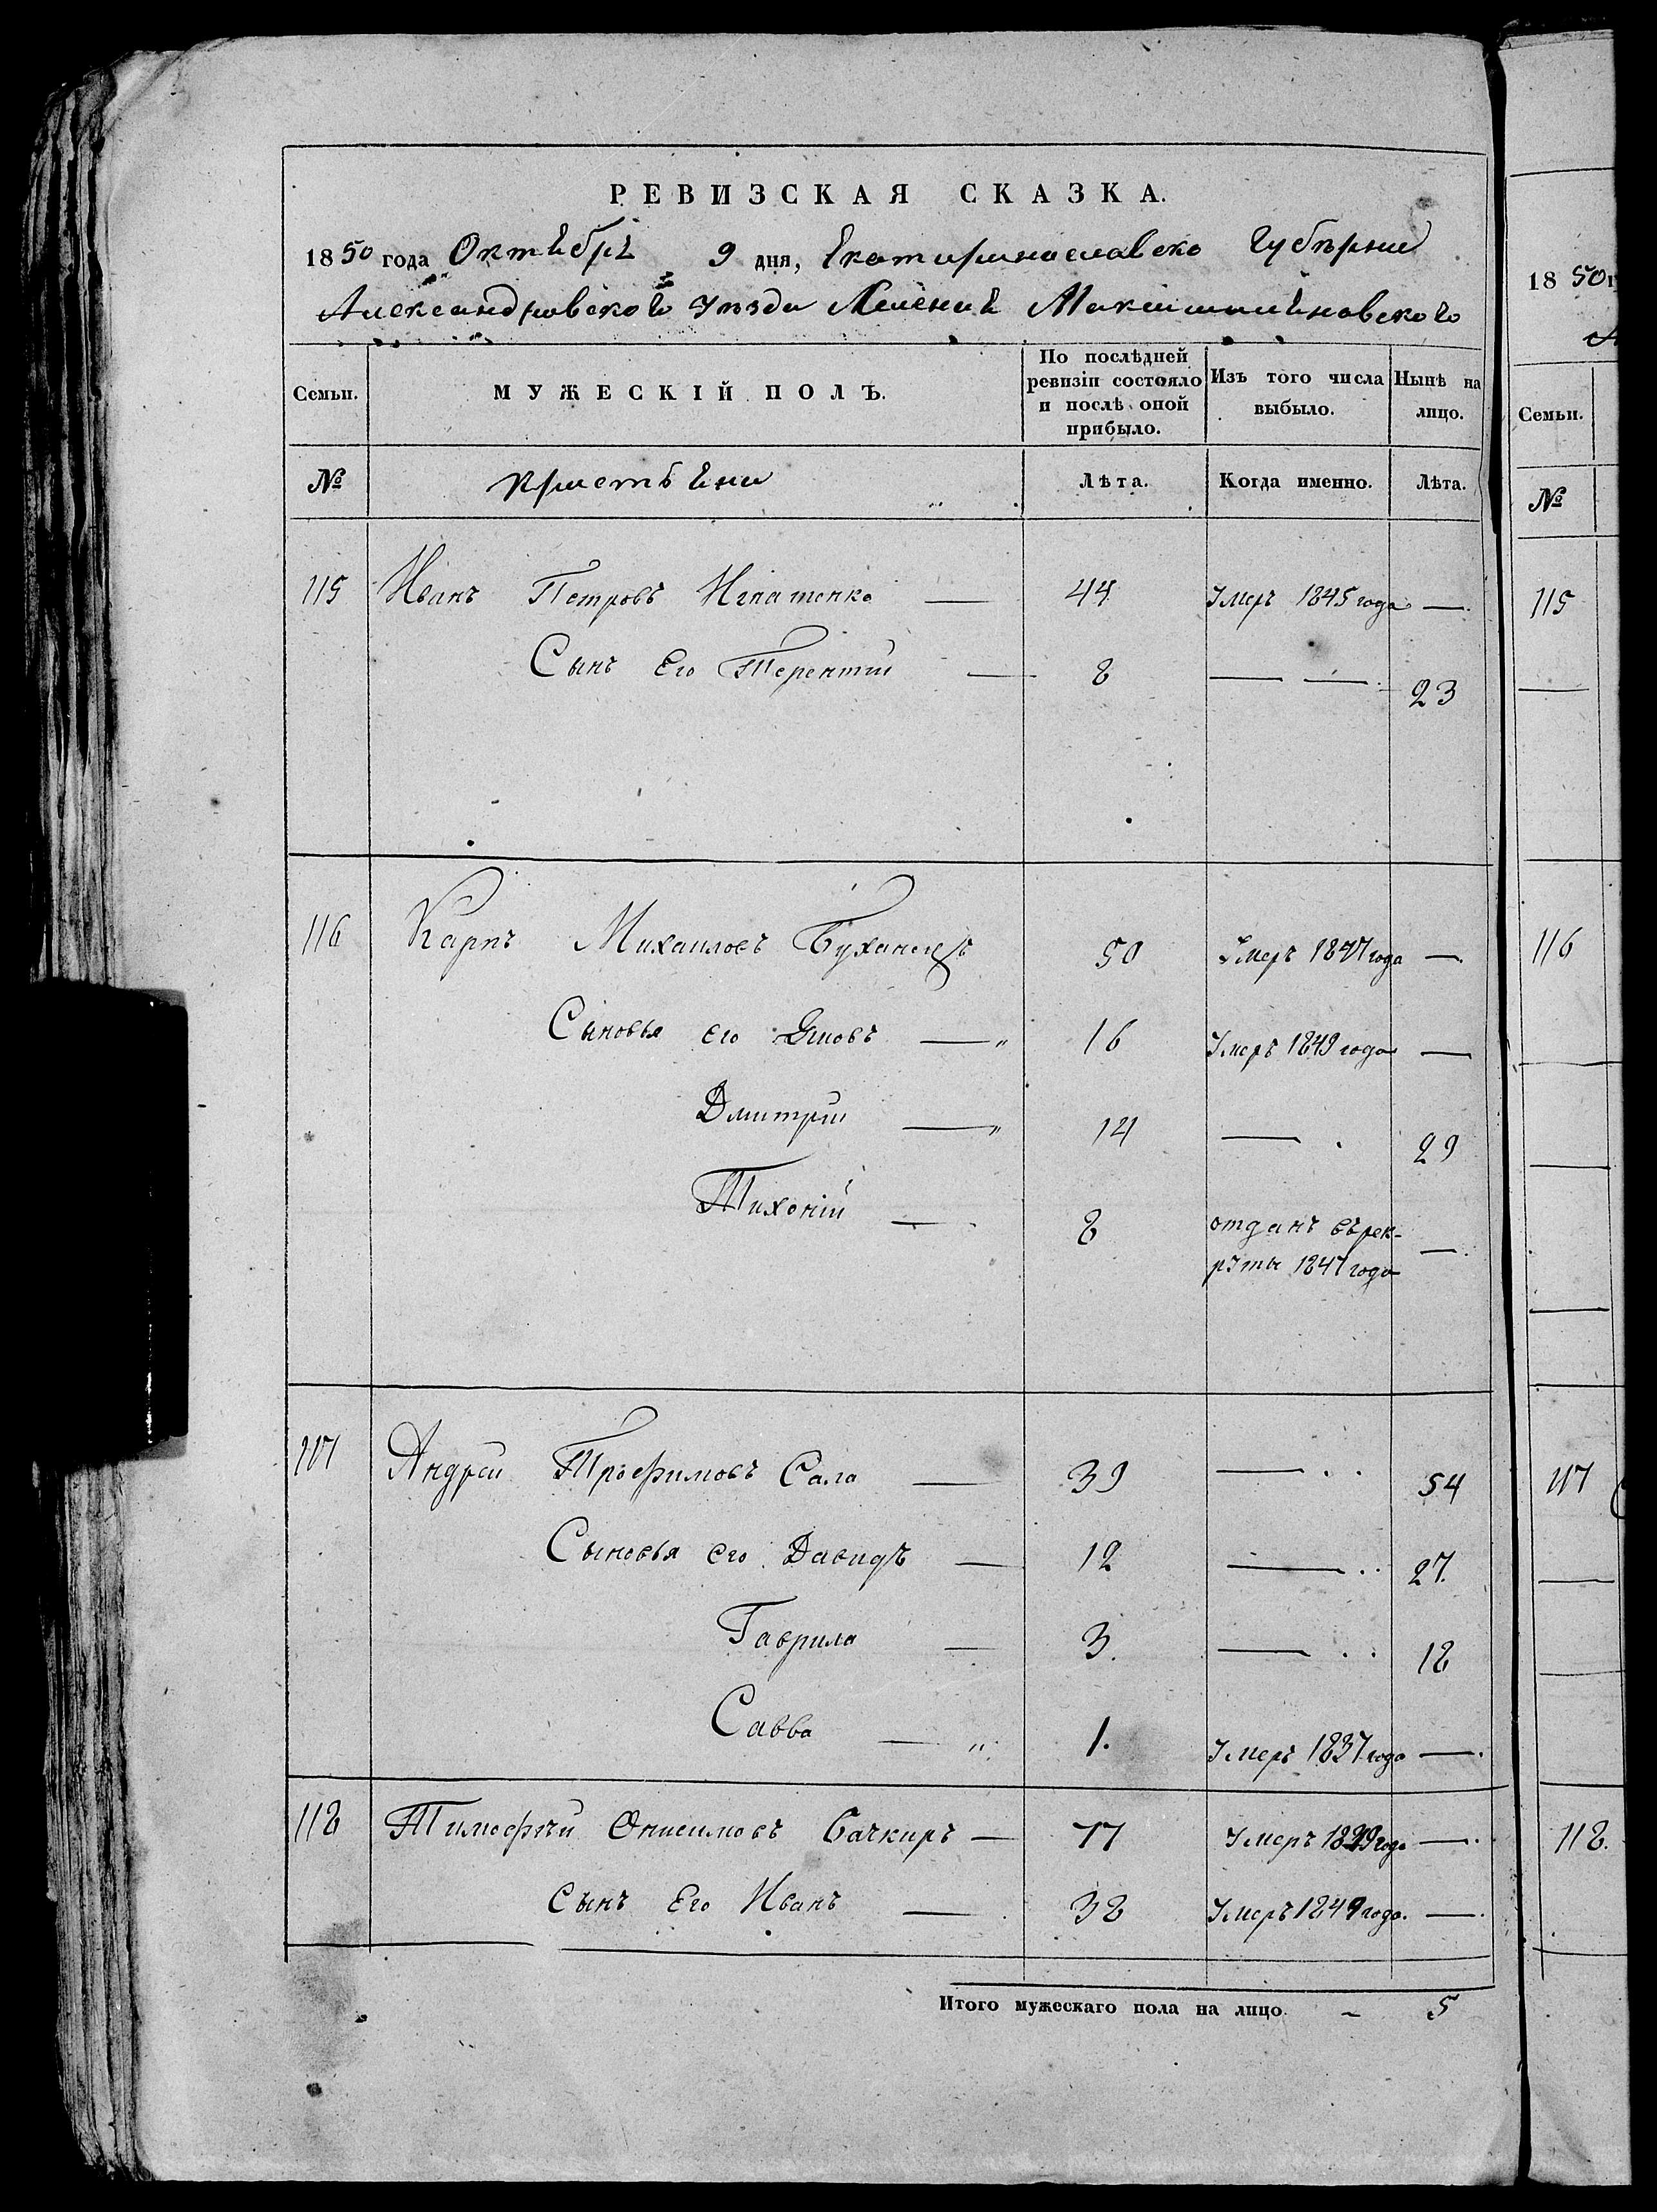 РЕВИЗСКАЯ СКАЗКА.
1850 года Октября 9 дня, Екатеринославско Губернии
Александровского уезда Имения Максимилияновского
Семьи. МУЖЕСКІЙ ПОЛЪ. По послѣдней ревизіи состояло и послѣ оной прибыло. Изъ того числа выбыло. Нынѣ на лицо.
№ Крестьяни Лѣта. Когда именно. Лѣта.
115 Иванъ Петровъ Игнатенко — 44 Умеръ 1845 года —
Сынъ Его Терентий — 8 — — 23
116 Карпъ Михаиловъ 50 Умеръ 1847 года —
Сыновья его Яковъ — 16 Умеръ 1849 года —
Дмитрий — 14 — 29
Тихоній — 8 отданъ въ рек-
руты 1847 года —
117 Андрей Трофимовъ Сало — 39 — 54
Сыновья его Давидъ — 12 — 27
Гаврила — 3. — 18
Савва — 1. Умеръ 1837 года —
118 Тимофѣй Онисимовъ — 77 Умеръ —
Сынъ Его Иванъ — 38 Умеръ 1849 года. —
Итого мужескаго пола на лицо. – 5
1850
Семьи.
№
115
116
117
118.